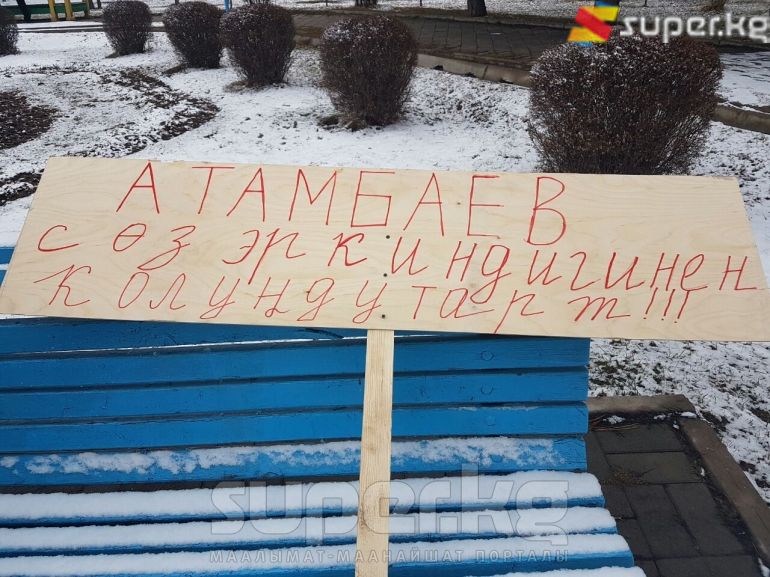 super.kg
АТАМБАЕВ
сөз эркиндигинен
колуңду тарт!!!
super.kg
МААЛЫМАТ-МААНАЙШАТ ПОРТАЛЫ